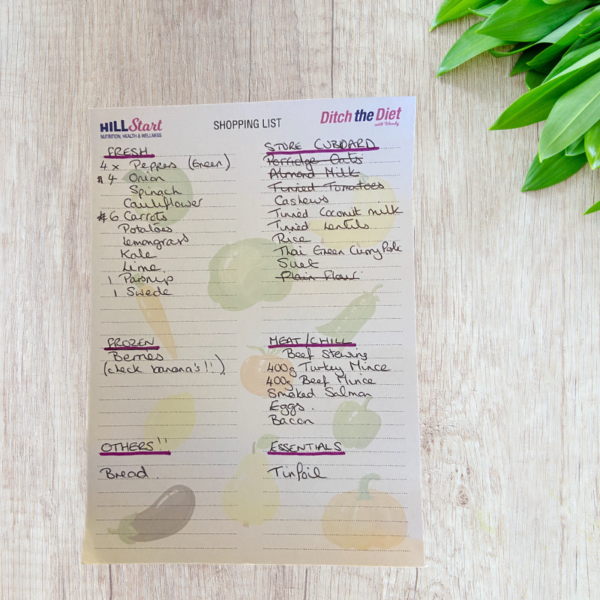 HILLStart
NUTRITION, HEALTH & WELLNESS
SHOPPING LIST
Ditch the Diet
with Wendy
FRESH
4 x Peppers (Green)
4 Onion
Spinach
Cauliflower
6 Carrots
Potatoes
Lemongrass
Kale
Lime
1 Parsnip
1 Swede
STORE CUBOARD
Porridge Oats
Almond Milk
Tinned Tomatoes
Cashews
Tinned Coconut milk
Tinned Lentils
Rice
Thai Green Curry
Suet
Plain Flour
FROZEN
Berries
(check banana's!!)
MEAT/CHILL
Beef Stewing
400g Turkey Mince
400g Beef Mince
Smoked Salmon
Eggs.
Bacon
OTHERS!!
Bread.
ESSENTIALS
Tinfoil